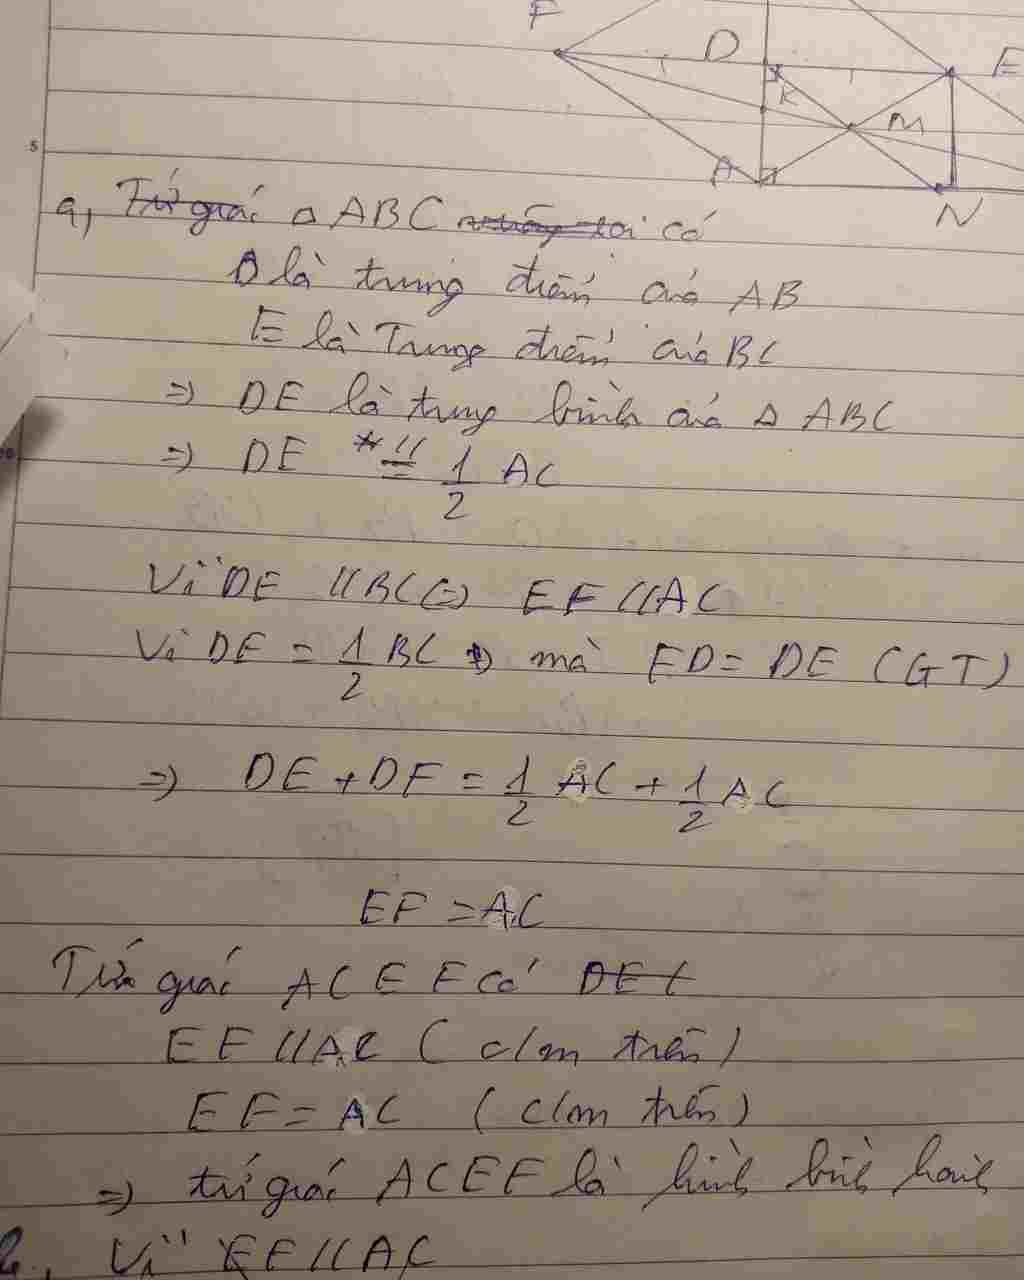 F
D
E
K
M
A
N
5
a, Tứ giác △ ABC có
D là trung điểm của AB
E là Trung điểm của BC
=> DE là trung bình của △ ABC
=> DE // = 1/2 AC
Vì DE // BC (=) EF // AC
Vì DE = 1/2 BC mà FD = DE (GT)
=> DE + DF = 1/2 AC + 1/2 AC
EF = AC
Tứ giác ACEF có DEC
EF // AC ( c/m trên )
EF = AC ( c/m trên )
=> tứ giác ACEF là hình bình hành
Vì EF // AC